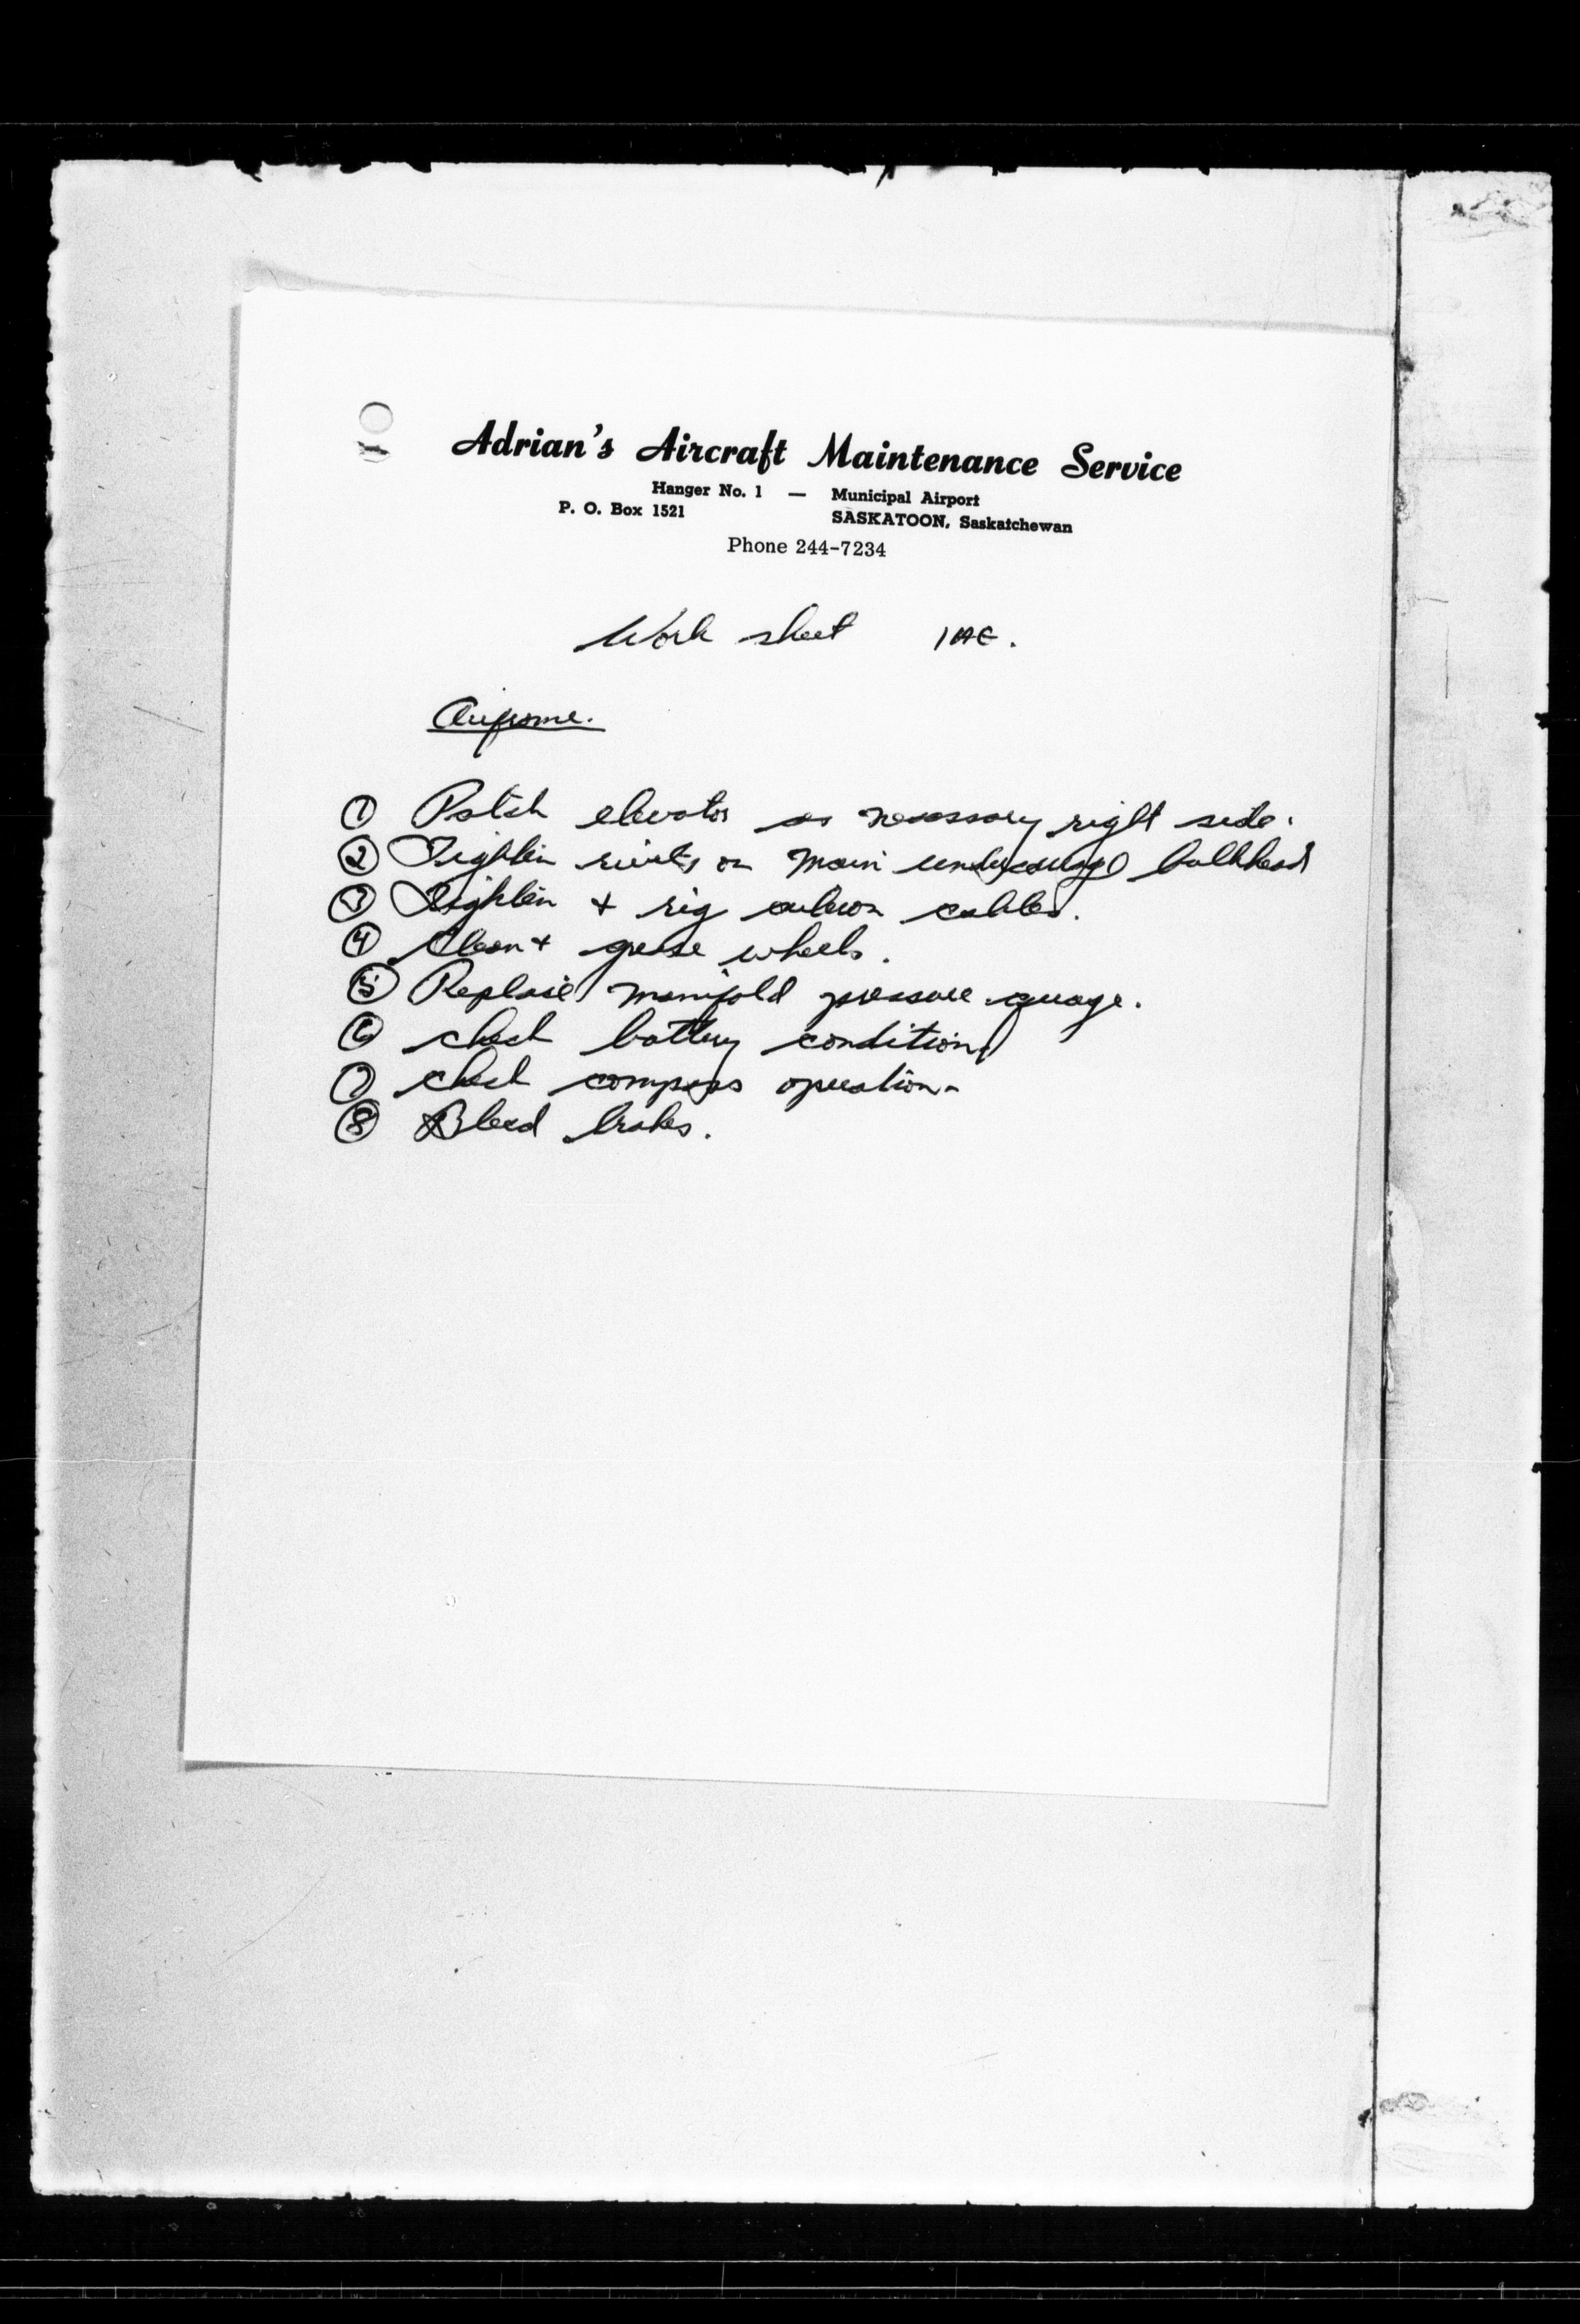 Adrian's Aircraft Maintenance Service
Hanger No. 1 — Municipal Airport
P. O. Box 1521 SASKATOON, Saskatchewan
Phone 244-7234
Work sheet
Airframe.
① Patch elevator as necessary right side.
② Tighten rivets on main undercarriage bulkhead
③ Tighten + rig aileron cables.
④ Clean + grease wheels.
⑤ Replace manifold pressure guage.
⑥ check battery condition
⑦ check compass operation
⑧ Bleed brakes.